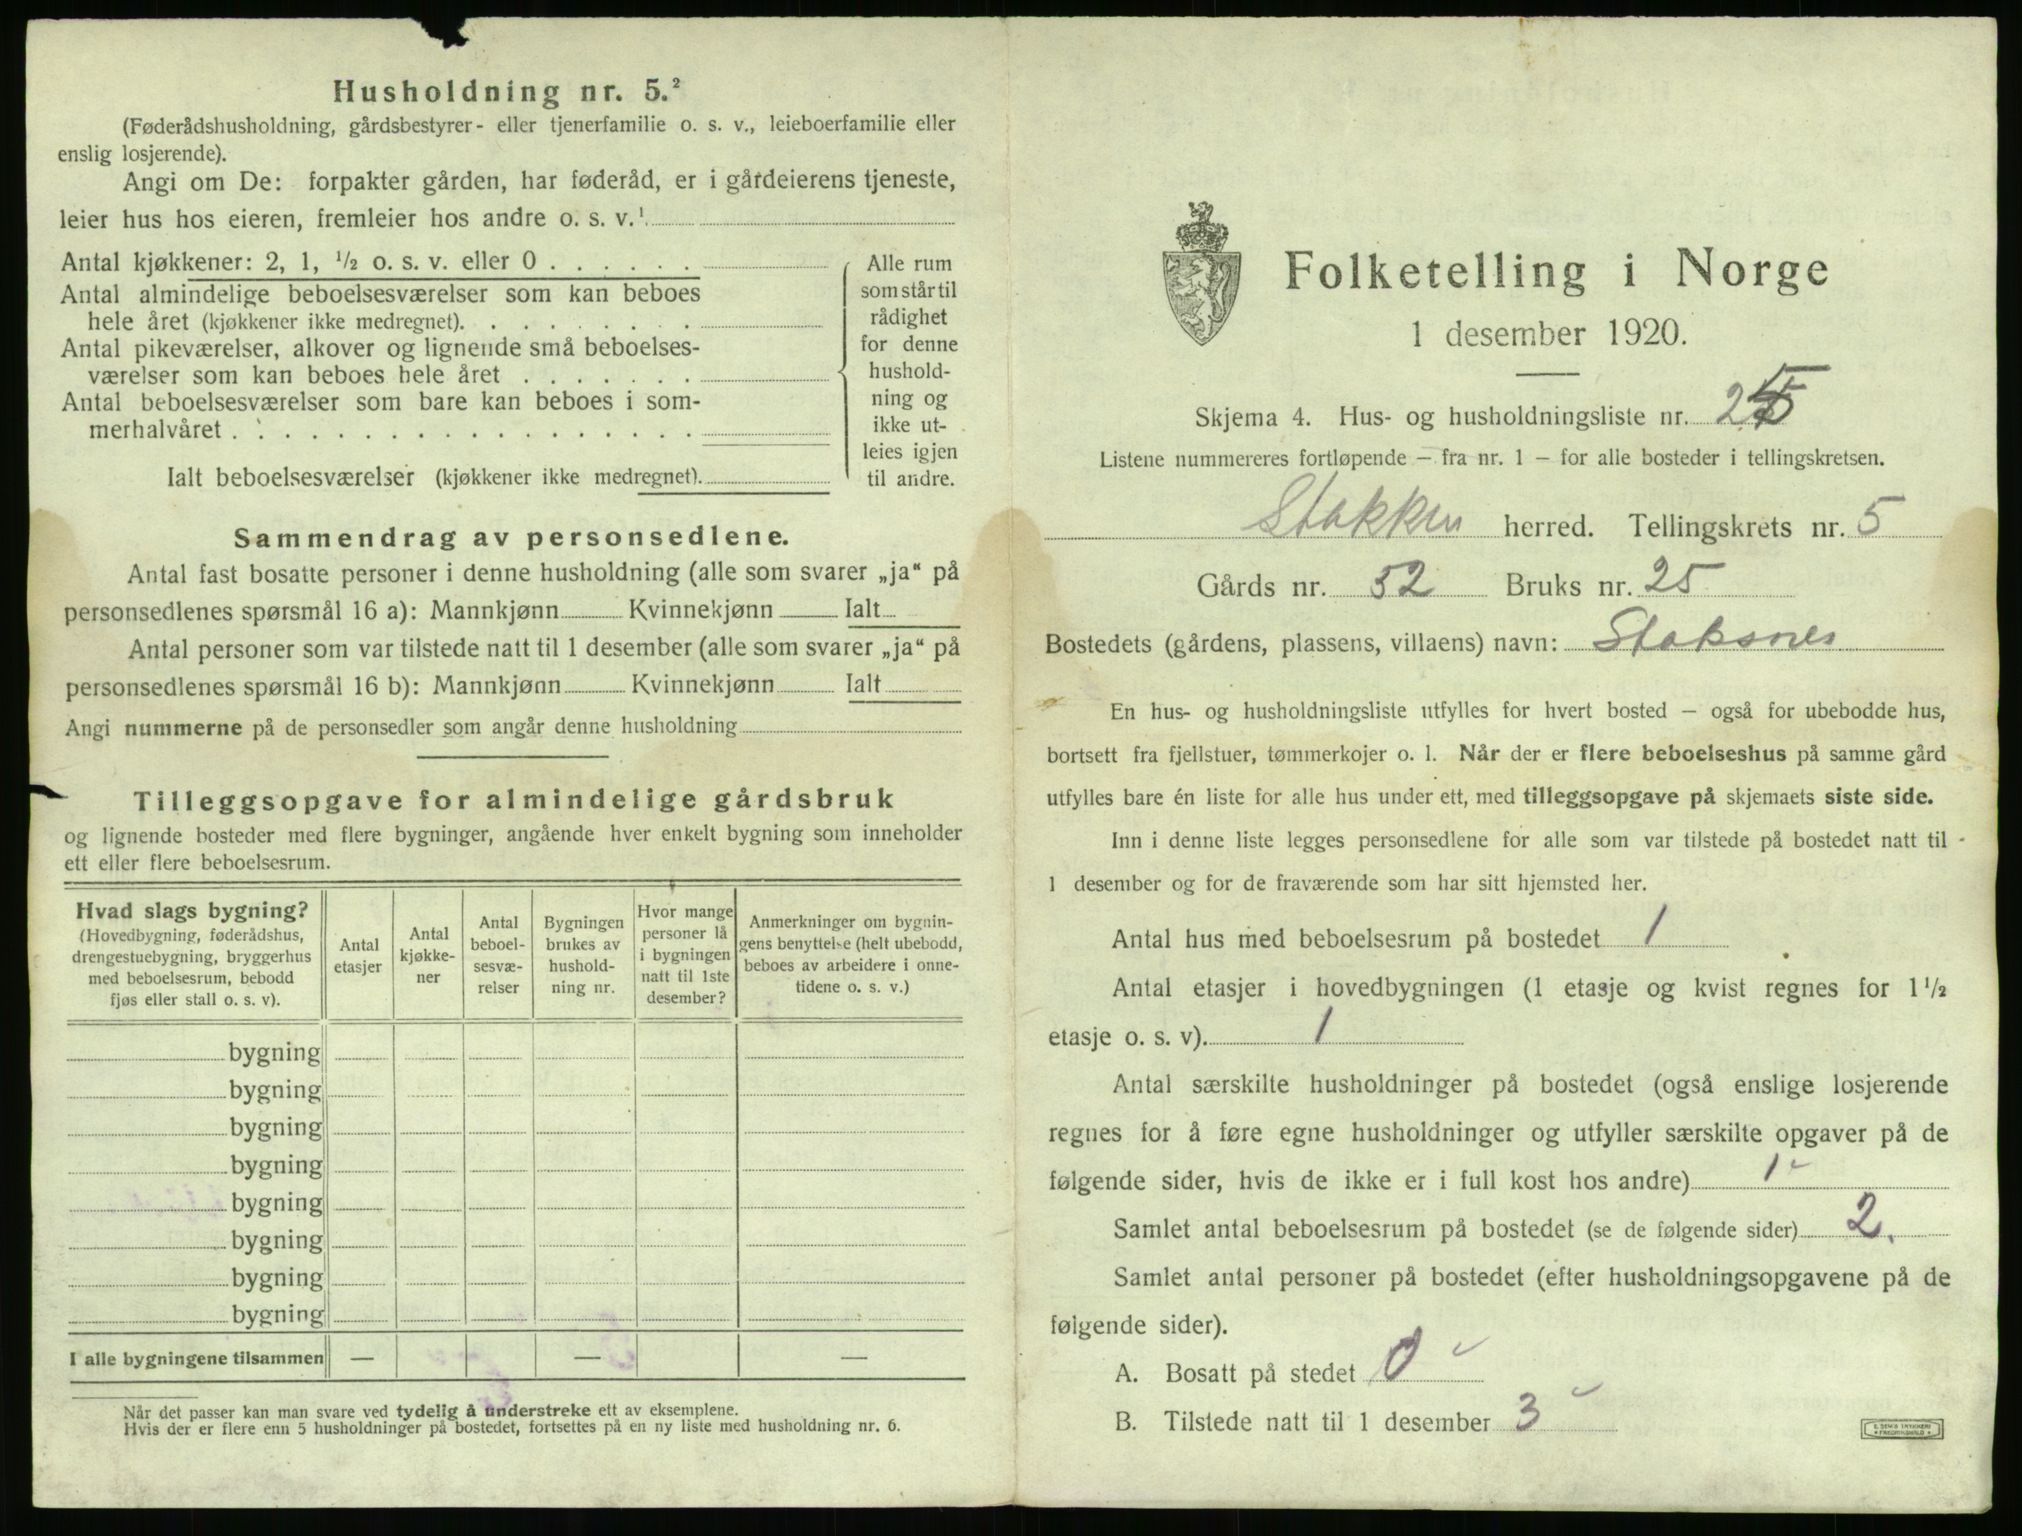 Husholdning nr. 5.²
(Føderådshusholdning, gårdsbestyrer- eller tjenerfamilie o. s. v., leieboerfamilie eller
enslig losjerende).
Angi om De: forpakter gården, har føderåd, er i gårdeierens tjeneste,
leier hus hos eieren, fremleier hos andre o. s. v.¹
Antal kjøkkener: 2, 1, ½ o. s. v. eller 0 . . . . . .
Antal almindelige beboelsesværelser som kan beboes
hele året (kjøkkener ikke medregnet). . . . . . . . .
Antal pikeværelser, alkover og lignende små beboelses-
værelser som kan beboes hele året . . . . . . .
Antal beboelsesværelser som bare kan beboes i som-
merhalvåret . . . . . . . . . . . . . . . . . .
Ialt beboelsesværelser (kjøkkener ikke medregnet).
Alle rum
som står til
rådighet
for denne
hushold-
ning og
ikke ut-
leies igjen
til andre.
Sammendrag av personsedlene.
Antal fast bosatte personer i denne husholdning (alle som svarer „ja“ på
personsedlenes spørsmål 16 a): Mannkjønn Kvinnekjønn Ialt
Antal personer som var tilstede natt til 1 desember (alle som svarer „ja“ på
personsedlenes spørsmål 16 b): Mannkjønn Kvinnekjønn Ialt
Angi nummerne på de personsedler som angår denne husholdning
Tilleggsopgave for almindelige gårdsbruk
og lignende bosteder med flere bygninger, angående hver enkelt bygning som inneholder
ett eller flere beboelsesrum.
Hvad slags bygning?
(Hovedbygning, føderådshus,
drengestuebygning, bryggerhus
med beboelsesrum, bebodd
fjøs eller stall o. s. v).
Antal
etasjer
Antal
kjøkke-
ner
Antal
beboel-
sesvæ-
relser
Bygningen
brukes av
hushold-
ning nr.
Hvor mange
personer lå
i bygningen
natt til 1ste
desember?
Anmerkninger om bygnin-
gens benyttelse (helt ubebodd,
beboes av arbeidere i onne-
tidene o. s. v.)
bygning
bygning
bygning
bygning
bygning
bygning
bygning
bygning
I alle bygningene tilsammen — — —
Når det passer kan man svare ved tydelig å understreke ett av eksemplene.
Hvis der er flere enn 5 husholdninger på bostedet, fortsettes på en ny liste med husholdning nr. 6.
Folketelling i Norge
1 desember 1920.
Skjema 4. Hus- og husholdningsliste nr. 25
Listene nummereres fortløpende — fra nr. 1 — for alle bosteder i tellingskretsen.
Stokken herred. Tellingskrets nr. 5
Gårds nr. 52 Bruks nr. 25
Bostedets (gårdens, plassens, villaens) navn: Staksnes
En hus- og husholdningsliste utfylles for hvert bosted — også for ubebodde hus,
bortsett fra fjellstuer, tømmerkojer o. l. Når der er flere beboelseshus på samme gård
utfylles bare én liste for alle hus under ett, med tilleggsopgave på skjemaets siste side.
Inn i denne liste legges personsedlene for alle som var tilstede på bostedet natt til
1 desember og for de fraværende som har sitt hjemsted her.
Antal hus med beboelsesrum på bostedet 1
Antal etasjer i hovedbygningen (1 etasje og kvist regnes for 1½
etasje o. s. v). 1
Antal særskilte husholdninger på bostedet (også enslige losjerende
regnes for å føre egne husholdninger og utfyller særskilte opgaver på de
følgende sider, hvis de ikke er i full kost hos andre) 1
Samlet antal beboelsesrum på bostedet (se de følgende sider) 2.
Samlet antal personer på bostedet (efter husholdningsopgavene på de
følgende sider).
A. Bosatt på stedet 0
B. Tilstede natt til 1 desember 3